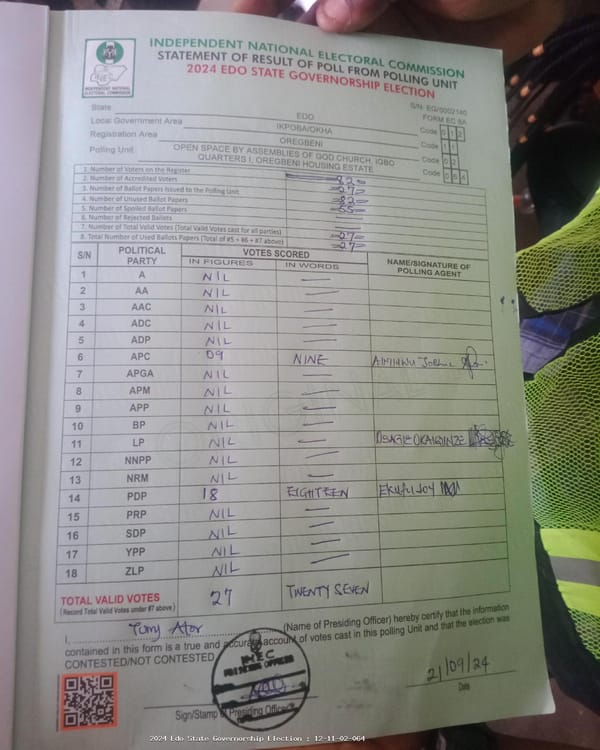 INDEPENDENT NATIONAL ELECTORAL COMMISSION
STATEMENT OF RESULT OF POLL FROM POLLING UNIT
2024 EDO STATE GOVERNORSHIP ELECTION
INDEPENDENT NATIONAL ELECTORAL COMMISSION
S/N: EG/0002140
FORM EC 8A
State EDO Code 1 2
Local Government Area IKPOBA/OKHA Code 1 1
Registration Area OREGBENI Code 0 2
Polling Unit: OPEN SPACE BY ASSEMBLIES OF GOD CHURCH, IGBO QUARTERS I, OREGBENI HOUSING ESTATE Code 0 6 4
1. Number of Voters on the Register
2. Number of Accredited Voters
3. Number of Ballot Papers Issued to the Polling Unit
4. Number of Unused Ballot Papers
5. Number of Spoiled Ballot Papers
6. Number of Rejected Ballots
7. Number of Total Valid Votes (Total Valid Votes cast for all parties) 27
8. Total Number of Used Ballots Papers (Total of #5 + #6 + #7 above) 27
S/N POLITICAL PARTY VOTES SCORED NAME/SIGNATURE OF POLLING AGENT
IN FIGURES IN WORDS
1 A NIL —
2 AA NIL —
3 AAC NIL —
4 ADC NIL —
5 ADP NIL —
6 APC 09 NINE
7 APGA NIL —
8 APM NIL —
9 APP NIL —
10 BP NIL —
11 LP NIL —
12 NNPP NIL —
13 NRM NIL —
14 PDP 18 EIGHTEEN
15 PRP NIL —
16 SDP NIL —
17 YPP NIL —
18 ZLP NIL —
TOTAL VALID VOTES 27 TWENTY SEVEN
(Record Total Valid Votes under #7 above)
I, Tony Ator (Name of Presiding Officer) hereby certify that the information
contained in this form is a true and accurate account of votes cast in this polling Unit and that the election was
CONTESTED/NOT CONTESTED
INEC
PRESIDING OFFICER
21/09/24
Sign/Stamp of Presiding Officer
Date
2024 Edo State Governorship Election : 12-11-02-064